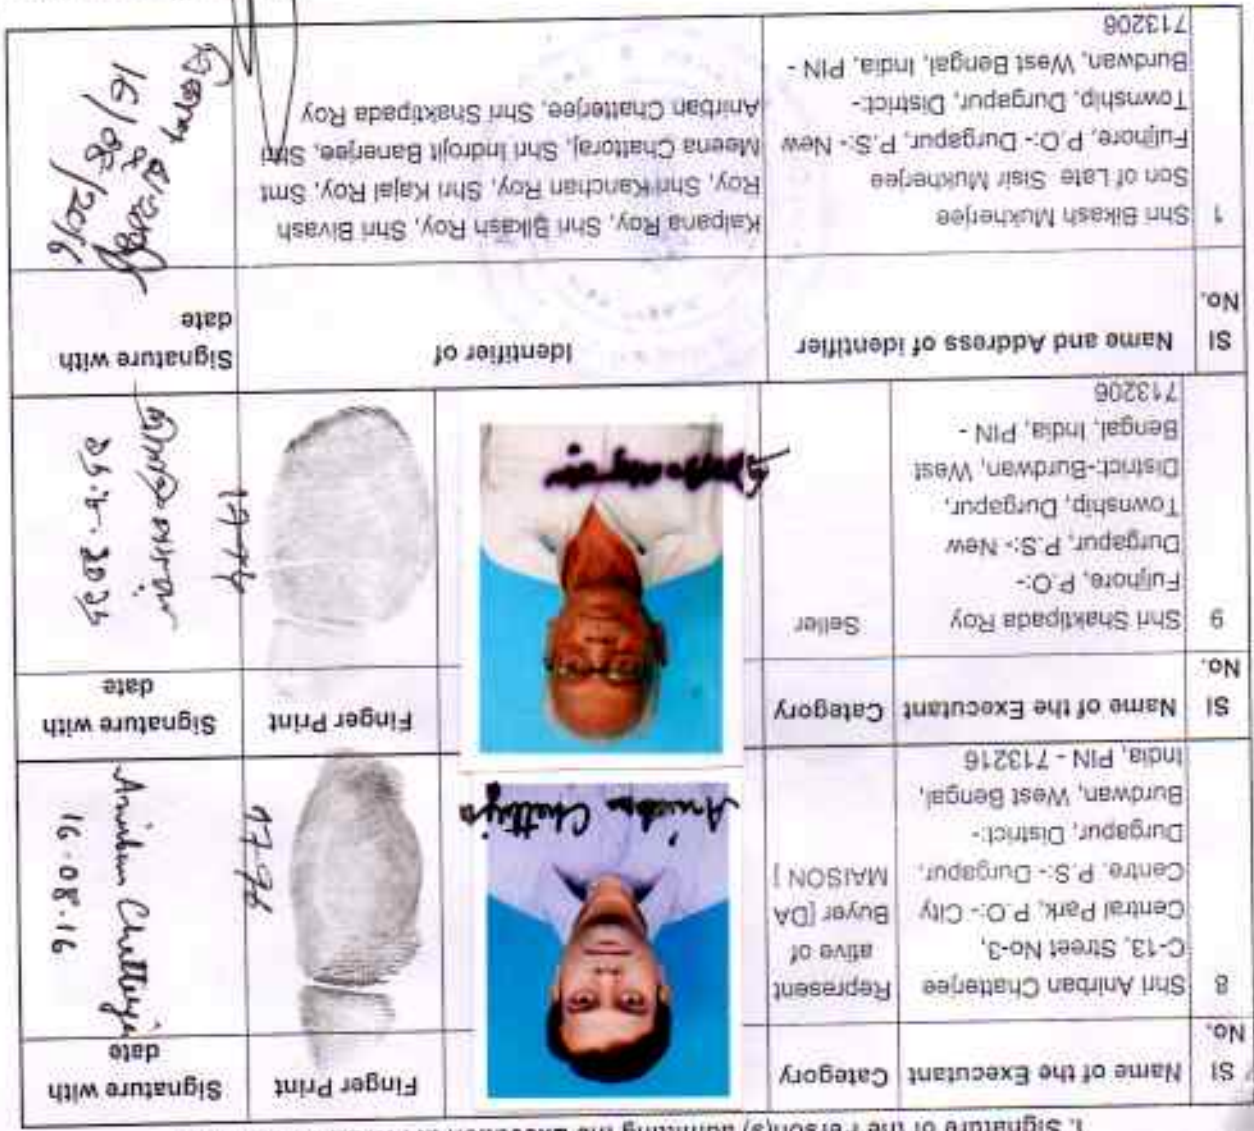 I. Signature of the Person(s) admitting the Execution
Sl No. Name of the Executant Category Finger Print Signature with date
8 Shri Anirban Chatterjee
C-13, Street No-3,
Central Park, P.O:- City
Centre, P.S:- Durgapur,
Durgapur, District:-
Burdwan, West Bengal,
India, PIN - 713216
Represent
ative of
Buyer [DA
MAISON ]
Anirban Chatterjee
1796
Anirban Chatterjee
16.08.16
Sl No. Name of the Executant Category Finger Print Signature with date
9 Shri Shaktipada Roy
Fuljhore, P.O:-
Durgapur, P.S:- New
Township, Durgapur,
District:-Burdwan, West
Bengal, India, PIN -
713206
Seller
Sl No. Name and Address of identifier Identifier of Signature with date
1 Shri Bikash Mukherjee
Son of Late Sisir Mukherjee
Fuljhore, P.O:- Durgapur, P.S:- New
Township, Durgapur, District:-
Burdwan, West Bengal, India, PIN -
713206
Kalpana Roy, Shri Bikash Roy, Shri Bivash
Roy, Shri Kanchan Roy, Shri Kajal Roy, Smt
Meena Chattoraj, Shri Indrojit Banerjee, Shri
Anirban Chatterjee, Shri Shaktipada Roy
16/08/2016